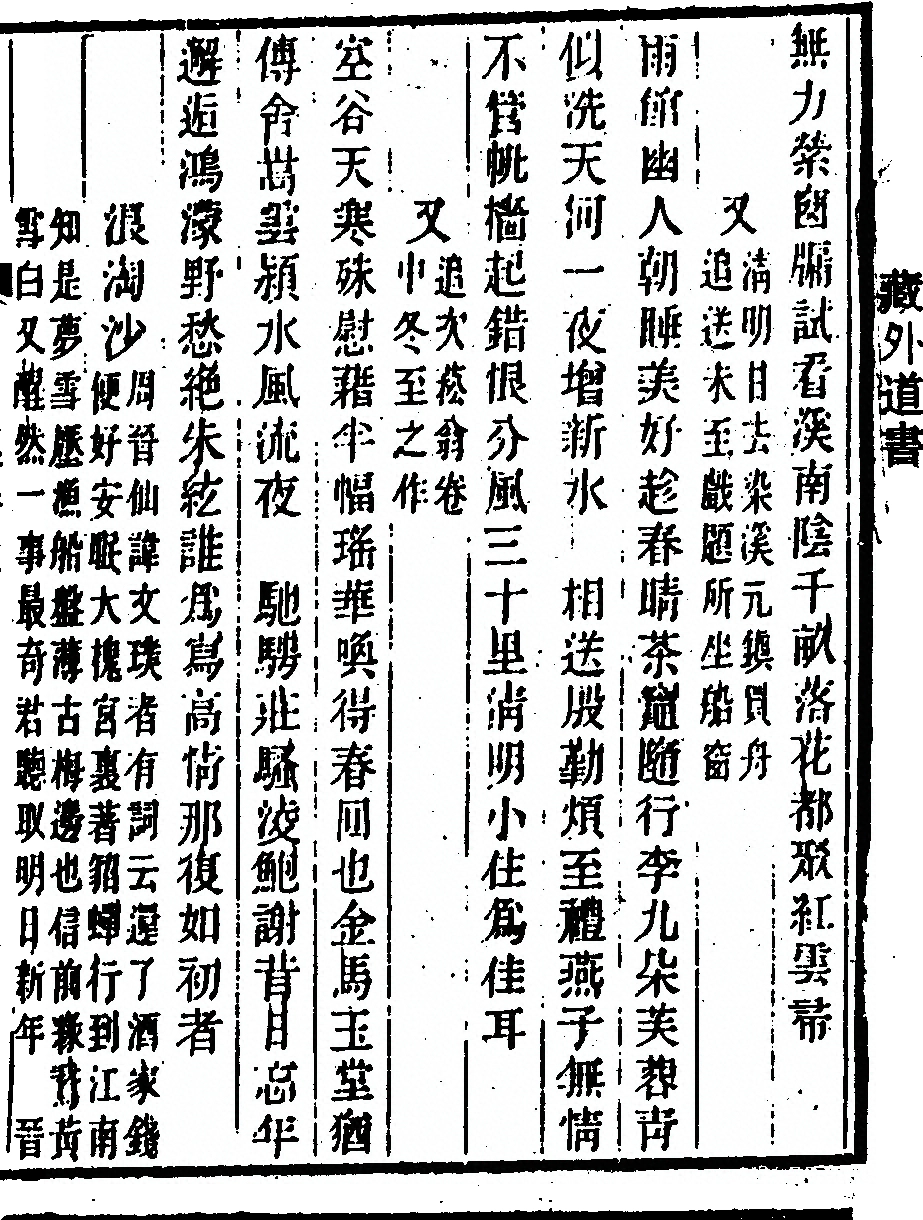 藏外道書
無力縈囪牖試看溪南陰千畝落花都聚紅雲帚
又
清明日去染溪元鎮具舟
追送未至戲題所坐船窗
雨館幽人朝睡美好趁春晴茶竈隨行李九朵芙蓉青
似洗天河一夜增新水 相送殷勤煩至禮燕子無情
不管帆檣起錯恨分風三十里清明小住為佳耳
又
追次菘翁卷
中冬至之作
空谷天寒殊慰藉半幅瑤華喚得春回也金馬玉堂猶
傳舍嵩雲潁水風流夜 馳騁莊騷淩鮑謝昔日忘年
邂逅鴻濛野愁絕朱絃誰為寫高情那復如初者
浪淘沙
周晉仙諱文璞者有詞云還了酒家錢
便好安眠大槐宮裏著貂蟬行到江南
知是夢雪壓漁船盤薄古梅邊也信前緣鵞黃
雪白又醒然一事最奇君聽取明日新年 晉